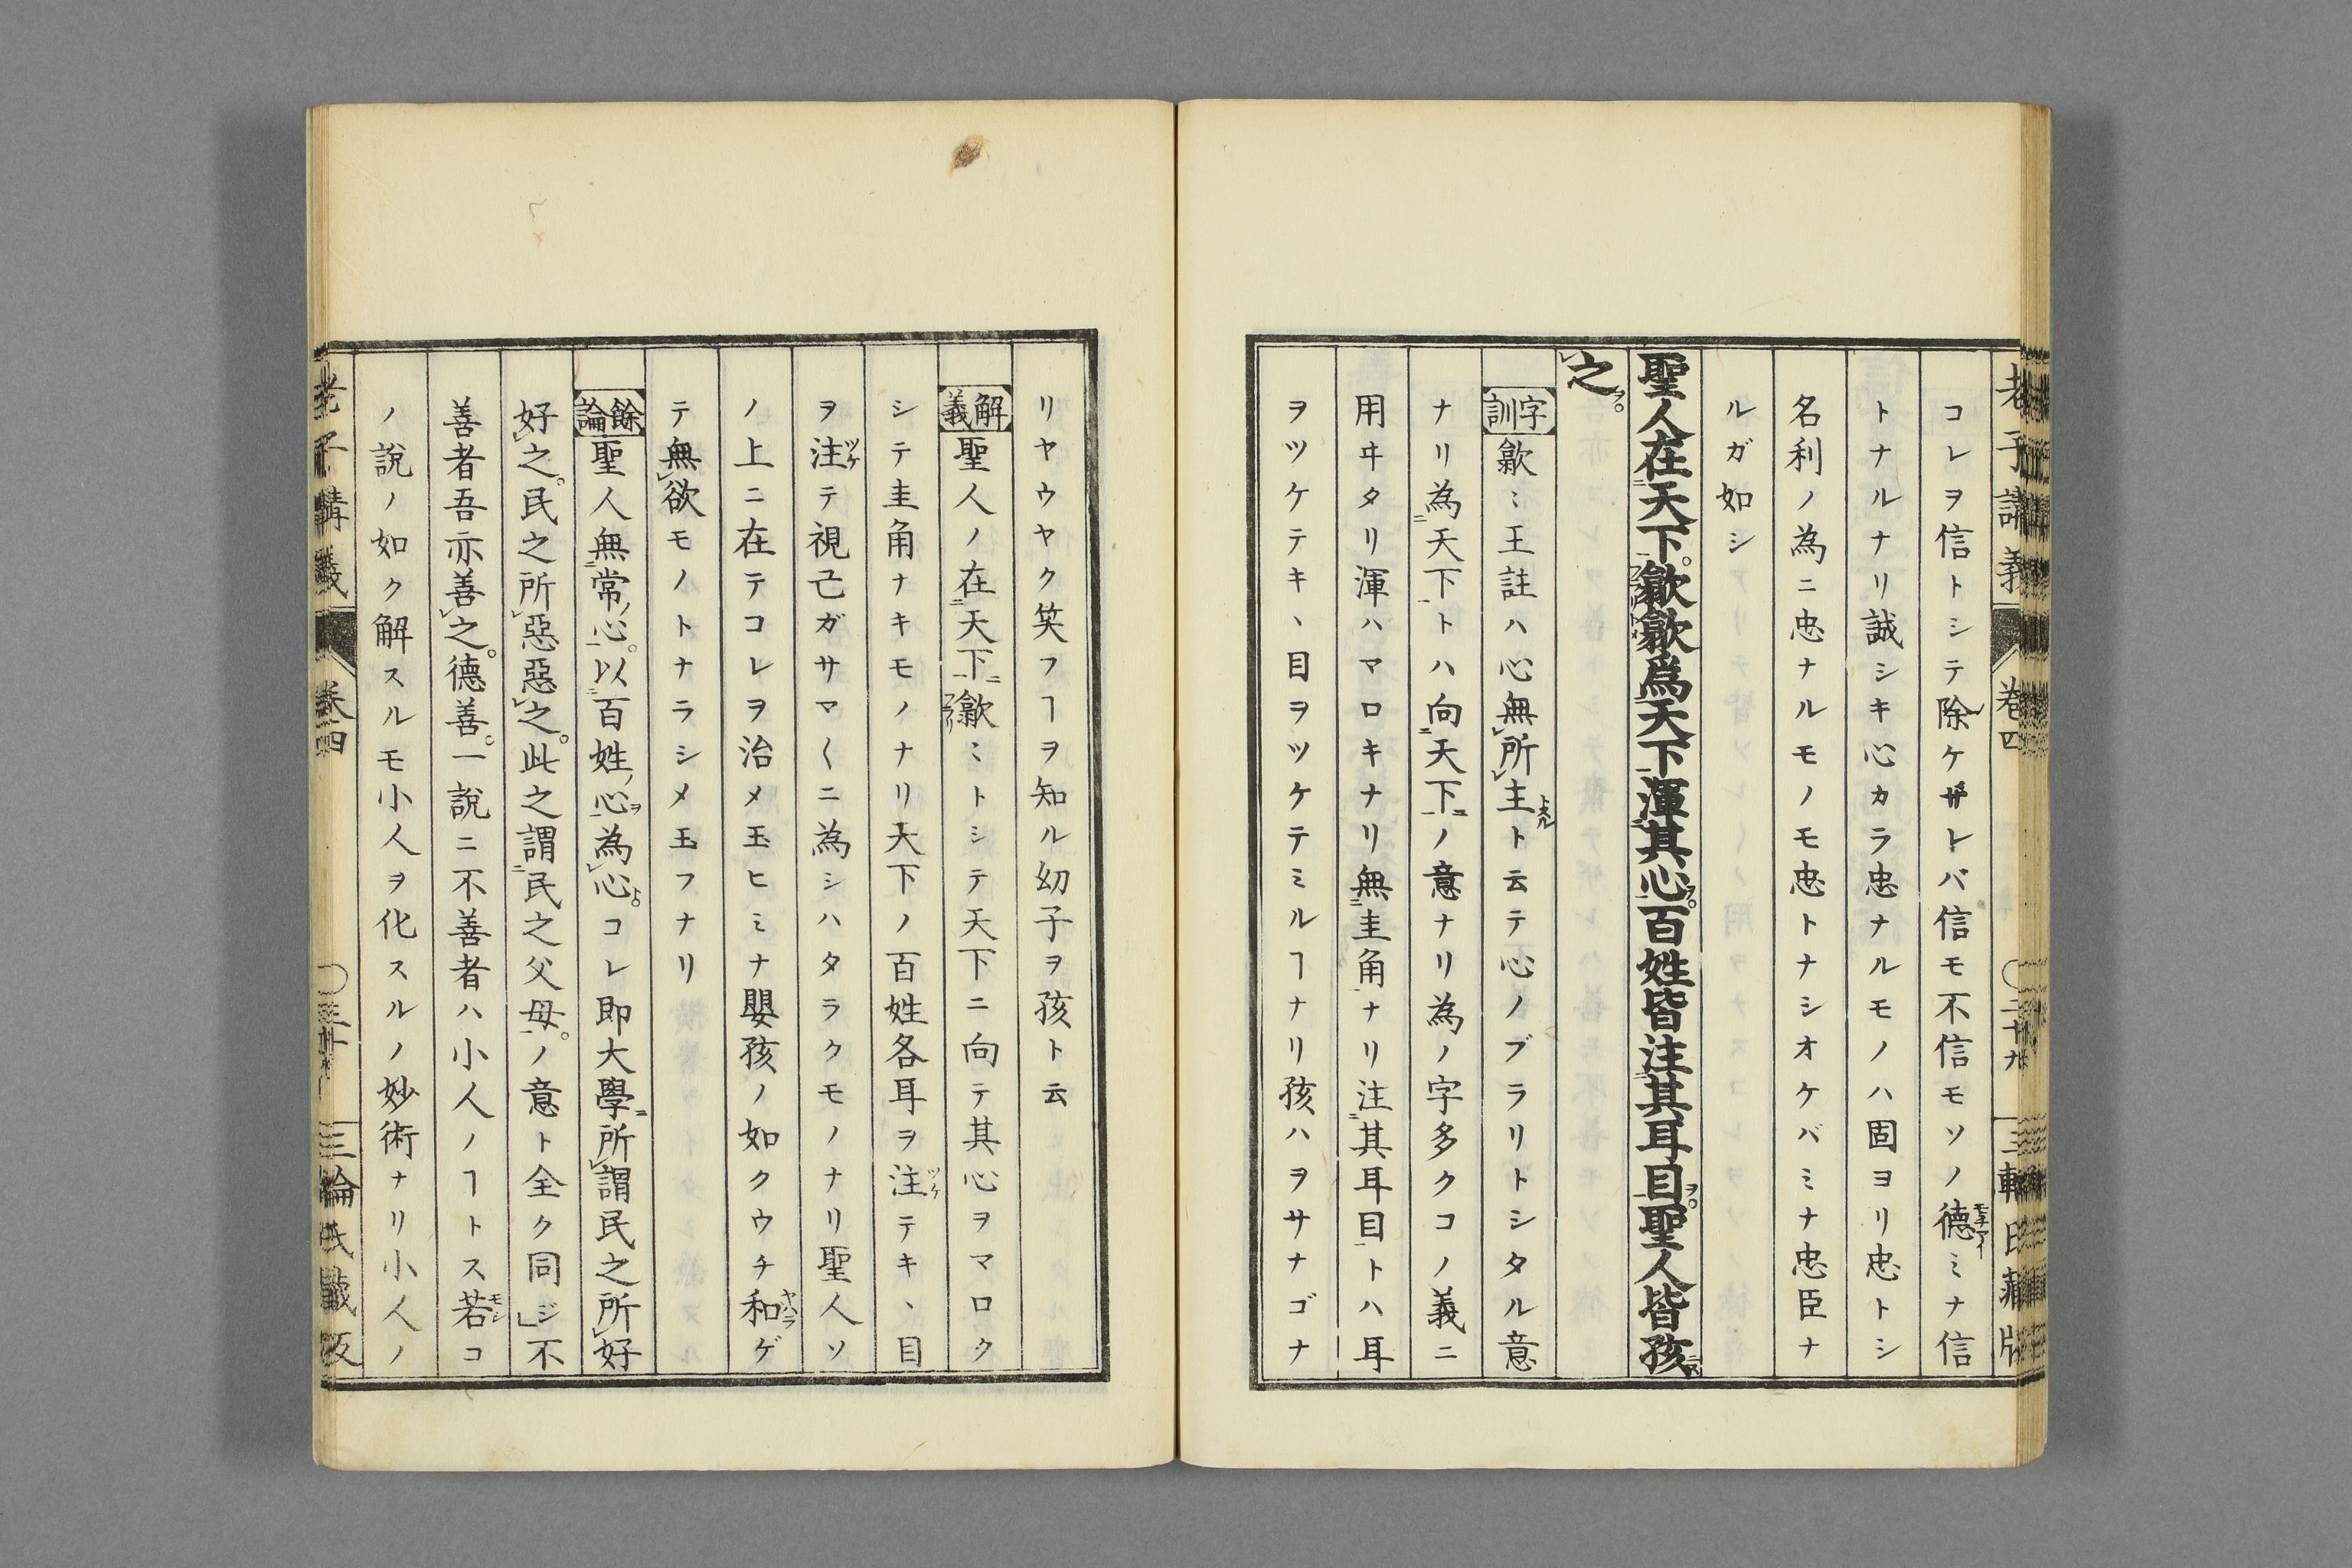 老子講義 巻四 〇二十九 三輪氏藏版
コレヲ信トシテ除ケザレバ信モ不信モソノ德ミナ信
トナルナリ誠シキ心カラ忠ナルモノハ固ヨリ忠トシ
名利ノ為ニ忠ナルモノモ忠トナシオケバミナ忠臣ナ
ルガ如シ
聖人在天下。歙歙爲天下渾其心。百姓皆注其耳目。聖人皆孩
之。
字訓 歙〻王註ハ心無所主ト云テ心ノブラリトシタル意
ナリ為天下トハ向天下ノ意ナリ為ノ字多クコノ義ニ
用ヰタリ渾ハマロキナリ無圭角ナリ注其耳目トハ耳
ヲツケテキヽ目ヲツケテミルヿナリ孩ハヲサナゴナ
リヤウヤク笑フヿヲ知ル幼子ヲ孩ト云
解義 聖人ノ在天下歙〻トシテ天下ニ向テ其心ヲマロク
シテ圭角ナキモノナリ天下ノ百姓各耳ヲ注テキヽ目
ヲ注テ視己ガサマ〱ニ為シハタラクモノナリ聖人ソ
ノ上ニ在テコレヲ治メ玉ヒミナ嬰孩ノ如クウチ和ゲ
テ無欲モノトナラシメ玉フナリ
餘論 聖人無常心。以百姓心為心。コレ即大學所謂民之所好
好之。民之所惡惡之。此之謂民之父母。ノ意ト全ク同ジ不
善者吾亦善之。德善。一說ニ不善者ハ小人ノヿトス若コ
ノ說ノ如ク解スルモ小人ヲ化スルノ妙術ナリ小人ノ
老子講義 巻四 三輪氏藏版